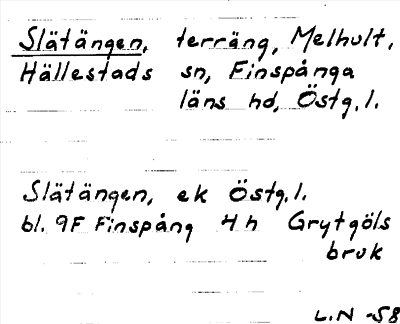 Slätängen, terräng, Melhult,
Hällestads sn, Finspånga
läns hd, Östg.l.
Slätängen, ek Östg.l.
bl. 9F Finspång 4h Grytgöls
bruk
L.N -58